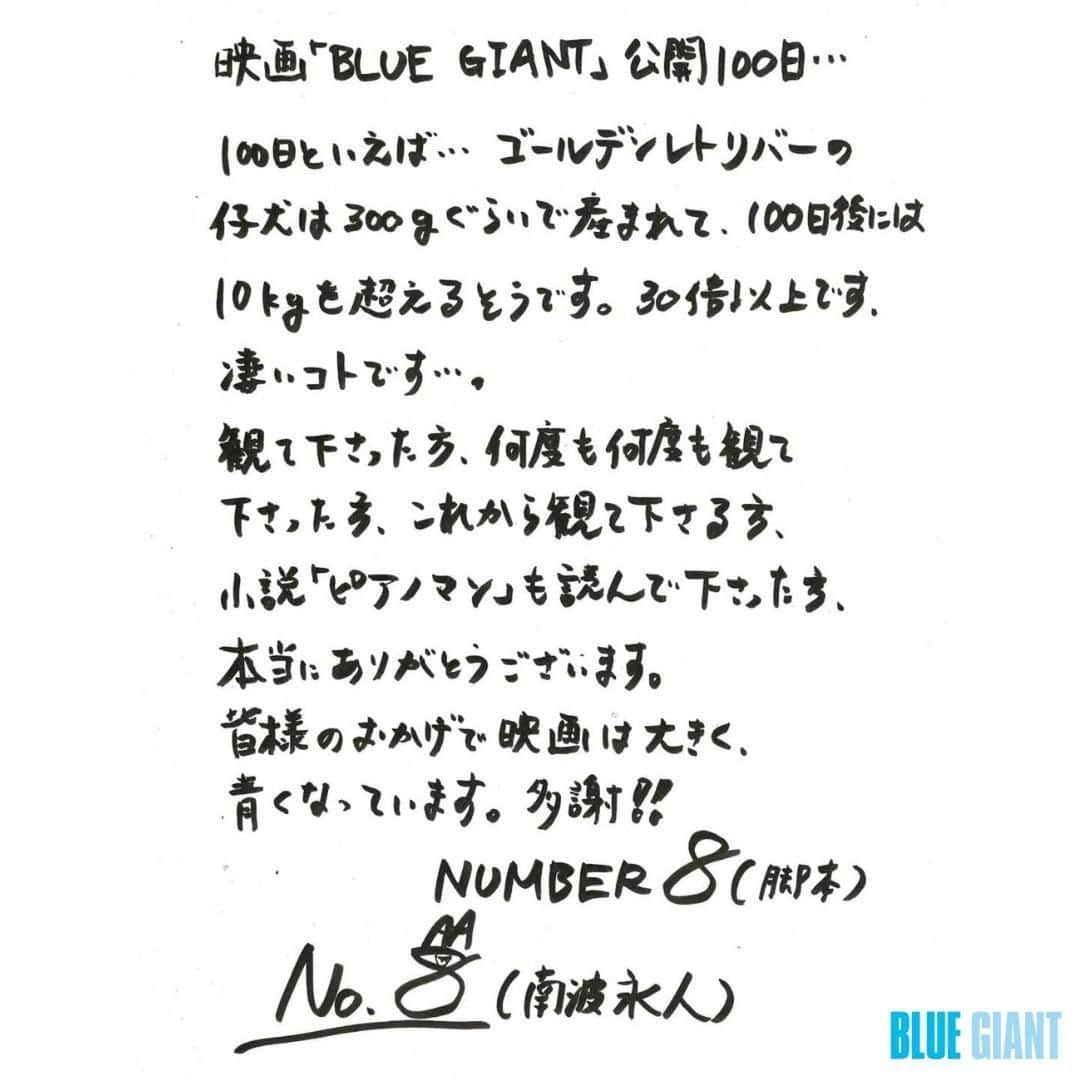 映画「BLUE GIANT」公開100日…
100日といえば… ゴールデンレトリバーの
仔犬は300gぐらいで産まれて、100日後には
10kgを超えるそうです。30倍以上です、
凄いコトです…。
観て下さった方、何度も何度も観て
下さった方、これから観て下さる方、
小説「ピアノマン」も読んで下さった方、
本当にありがとうございます。
皆様のおかげで映画は大きく、
青くなっています。多謝!!
NUMBER 8（脚本）
No. 8（南波永人）
BLUE GIANT